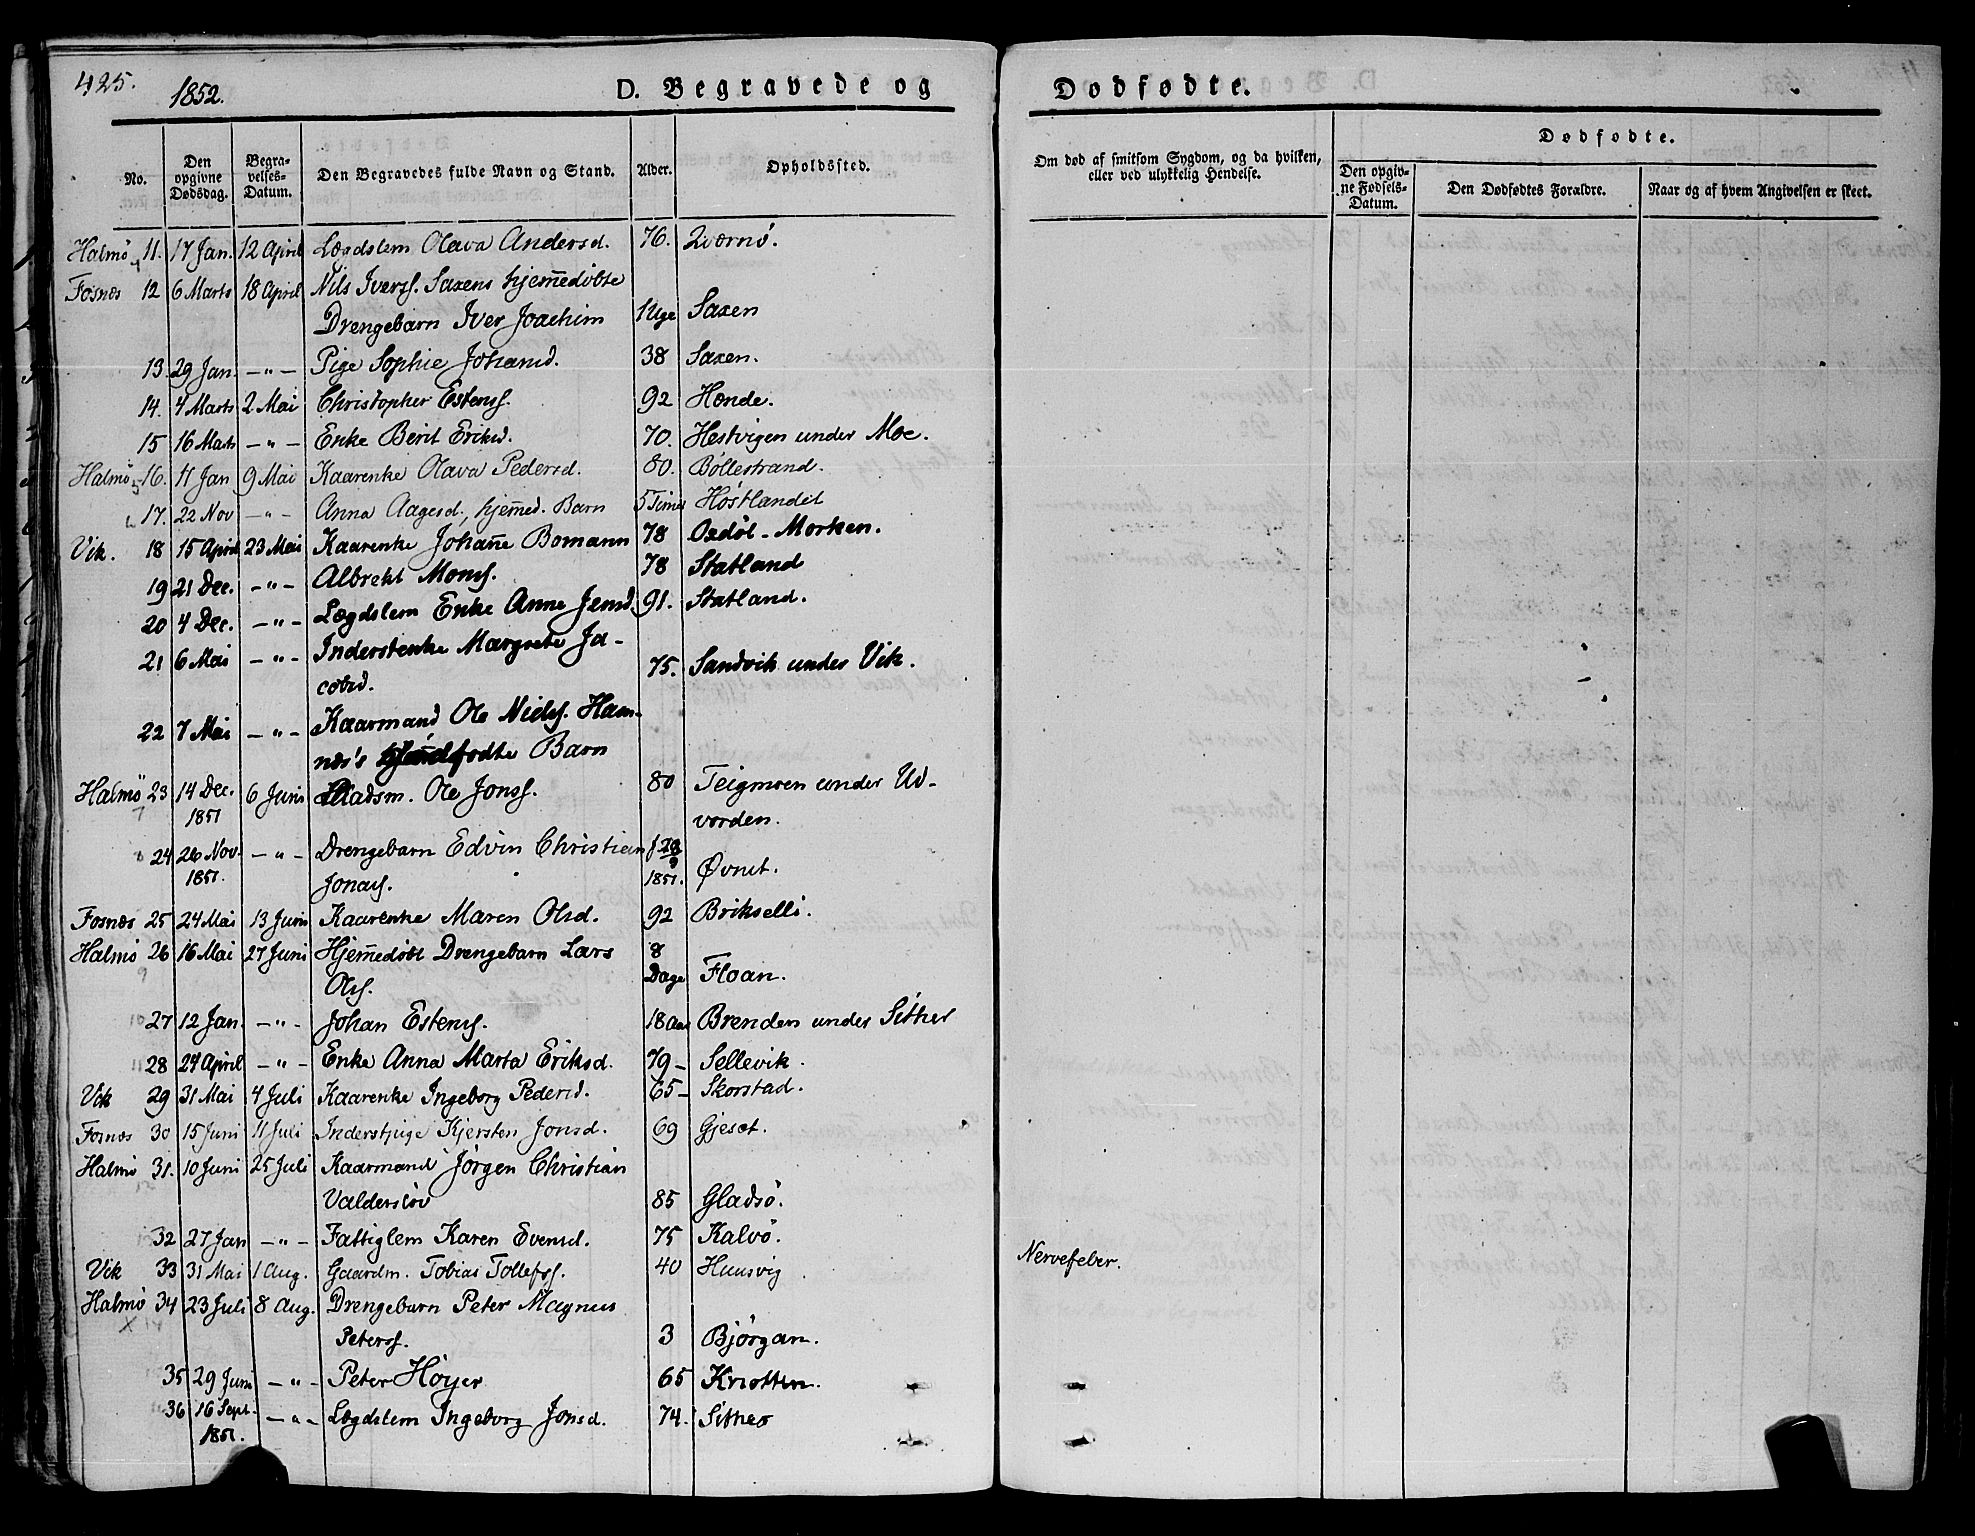 425.
1852.
D. Begravede og Dødfødte.
No.
Den opgivne Dødsdag.
Begravelses-Datum.
Den Begravedes fulde Navn og Stand.
Alder.
Opholdssted.
Om død af smitsom Sygdom, og da hvilken, eller ved ulykkelig Hendelse.
Dødfødte.
Den opgivne Fødsels-Datum.
Den Dødfødtes Forældre.
Naar og af hvem Angivelsen er skeet.
Halmø 11. 17 Jan. 12 April Lægdslem Olava Andersd. 76. Qværnø.
Fosnæs 12 6 Marts 18 April Nils Iverss. Saxens hjem̄edøbte
Drengebarn Iver Joachim 1 Uge Saxen
13. 29 Jan. -"- Pige Sophie Johansd. 38 Saxen.
14. 4 Marts 2 Mai Christopher Estenss. 92 Hænde.
15 16 Marts -"- Enke Berit Eriksd. 70. Hestvigen under Moe.
Halmø 16. 11 Jan 9 Mai Kaarenke Olava Pedersd. 80. Bøllestrand.
17. 22 Nov -"- Anna Aagesd., hjem̄ed. Barn 5 Timer Høstlandet
Vik. 18 15 April 23 Mai Kaarenke Johan̄e Bomann 78 Oxdøl-Morken.
19 21 Dec. -"- Albrekt Monss. 78 Statland
20 4 Dec. -"- Lægdslem Enke Anne Jensd. 91. Statland.
21 6 Mai -"- Inderstenke Margrete Ja-
cobsd. 75. Sandvik under Vik.
22 7 Mai -"- Kaarmand Ole Nielss. Ham-
næs's fødte Barn
Halmø 23 14 Dec. 1851 6 Juni Pladsm. Ole Jonss. 80 Teigmoen under Ud-
vorden.
24 26 Nov. 1851. -"- Drengebarn Edvin Christian
Jonass. 1851. Øvnet.
Fosnæs 25 24 Mai 13 Juni Kaarenke Maren Olsd. 92 Brikselli.
Halmø 26 16 Mai 27 Juni Hjem̄edøbt Drengebarn Lars
Olss. 8 Dage Floan.
27 12 Jan. -"- Johan Estenss. 18 Aar Brenden under Sither
28 24 April -"- Enke Anna Marta Eriksd. 79- Sellevik.
Vik 29 31 Mai 4 Juli Kaarenke Ingeborg Pedersd. 65- Skorstad.
Fosnæs 30 15 Juni 11 Juli Inderstpige Kjersten Jonsd. 69 Gjesæt.
Halmø 31. 10 Juni 25 Juli Kaarmand Jørgen Christian
Valdersløv 85 Gladsø.
32 27 Jan -"- Fattiglem Karen Evensd. 75 Kalvø.
Vik 33 31 Mai 1 Aug. Gaardm. Tobias Tollefss. 40 Huusvig Nervefeber.
Halmø 34 23 Juli 8 Aug. Drengebarn Peter Magnus
Peterss. 3 Bjørgan.
35 29 Juni -"- Peter Høyer 65 Knotten.
36 16 Sept. 1851. -"- Lægdslem Ingeborg Jonsd. 74. Sither